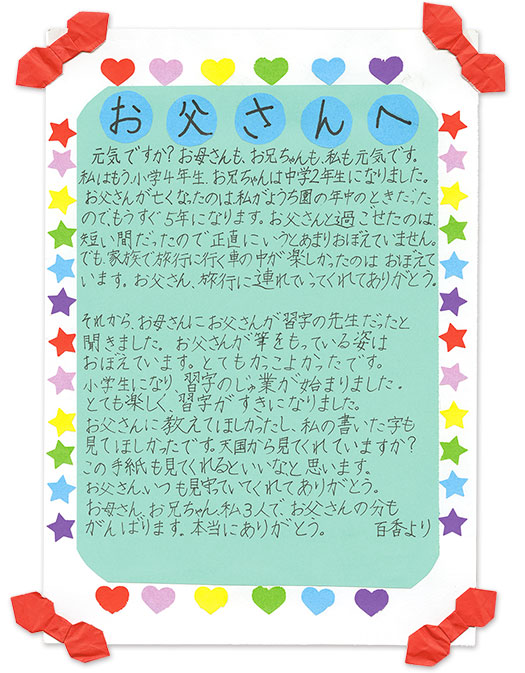 お父さんへ
元気ですか？お母さんも、お兄ちゃんも、私も元気です。
私はもう小学4年生、お兄ちゃんは中学2年生になりました。
お父さんが亡くなったのは私がようち園の年中のときだった
のでもうすぐ5年になります。お父さんと過ごせたのは
短い間だったので正直にいうとあまりおぼえていません。
でも、家族で旅行に行く車の中が楽しかったのは おぼえて
います。お父さん、旅行に連れていってくれてありがとう。
それから、お母さんにお父さんが習字の先生だったと
聞きました。お父さんが筆をもっている姿は
おぼえています。とてもかっこよかったです。
小学生になり、習字のじゅ業が始まりました。
とても楽しく、習字がすきになりました。
お父さんに教えてほしかったし、私の書いた字も
見てほしかったです。天国から見てくれていますか？
この手紙も見てくれるといいなと思います。
お父さん、いつも見守っていてくれてありがとう。
お母さん、お兄ちゃん、私3人で、お父さんの分も
がんばります。本当にありがとう。 百香より